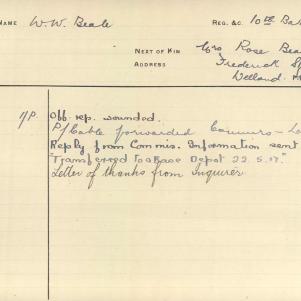 NAME W.W. Beale REG. &C. 10th Ba
NEXT OF KIN Mrs Rose Bea
ADDRESS Frederick S
Welland.
1/P. Off. rep. wounded.
P/Cable forwarded Commrs - Lo
Reply from Commis. Information sent
"Transferred to Base Depot 22.5.17."
Letter of thanks from Inquirer